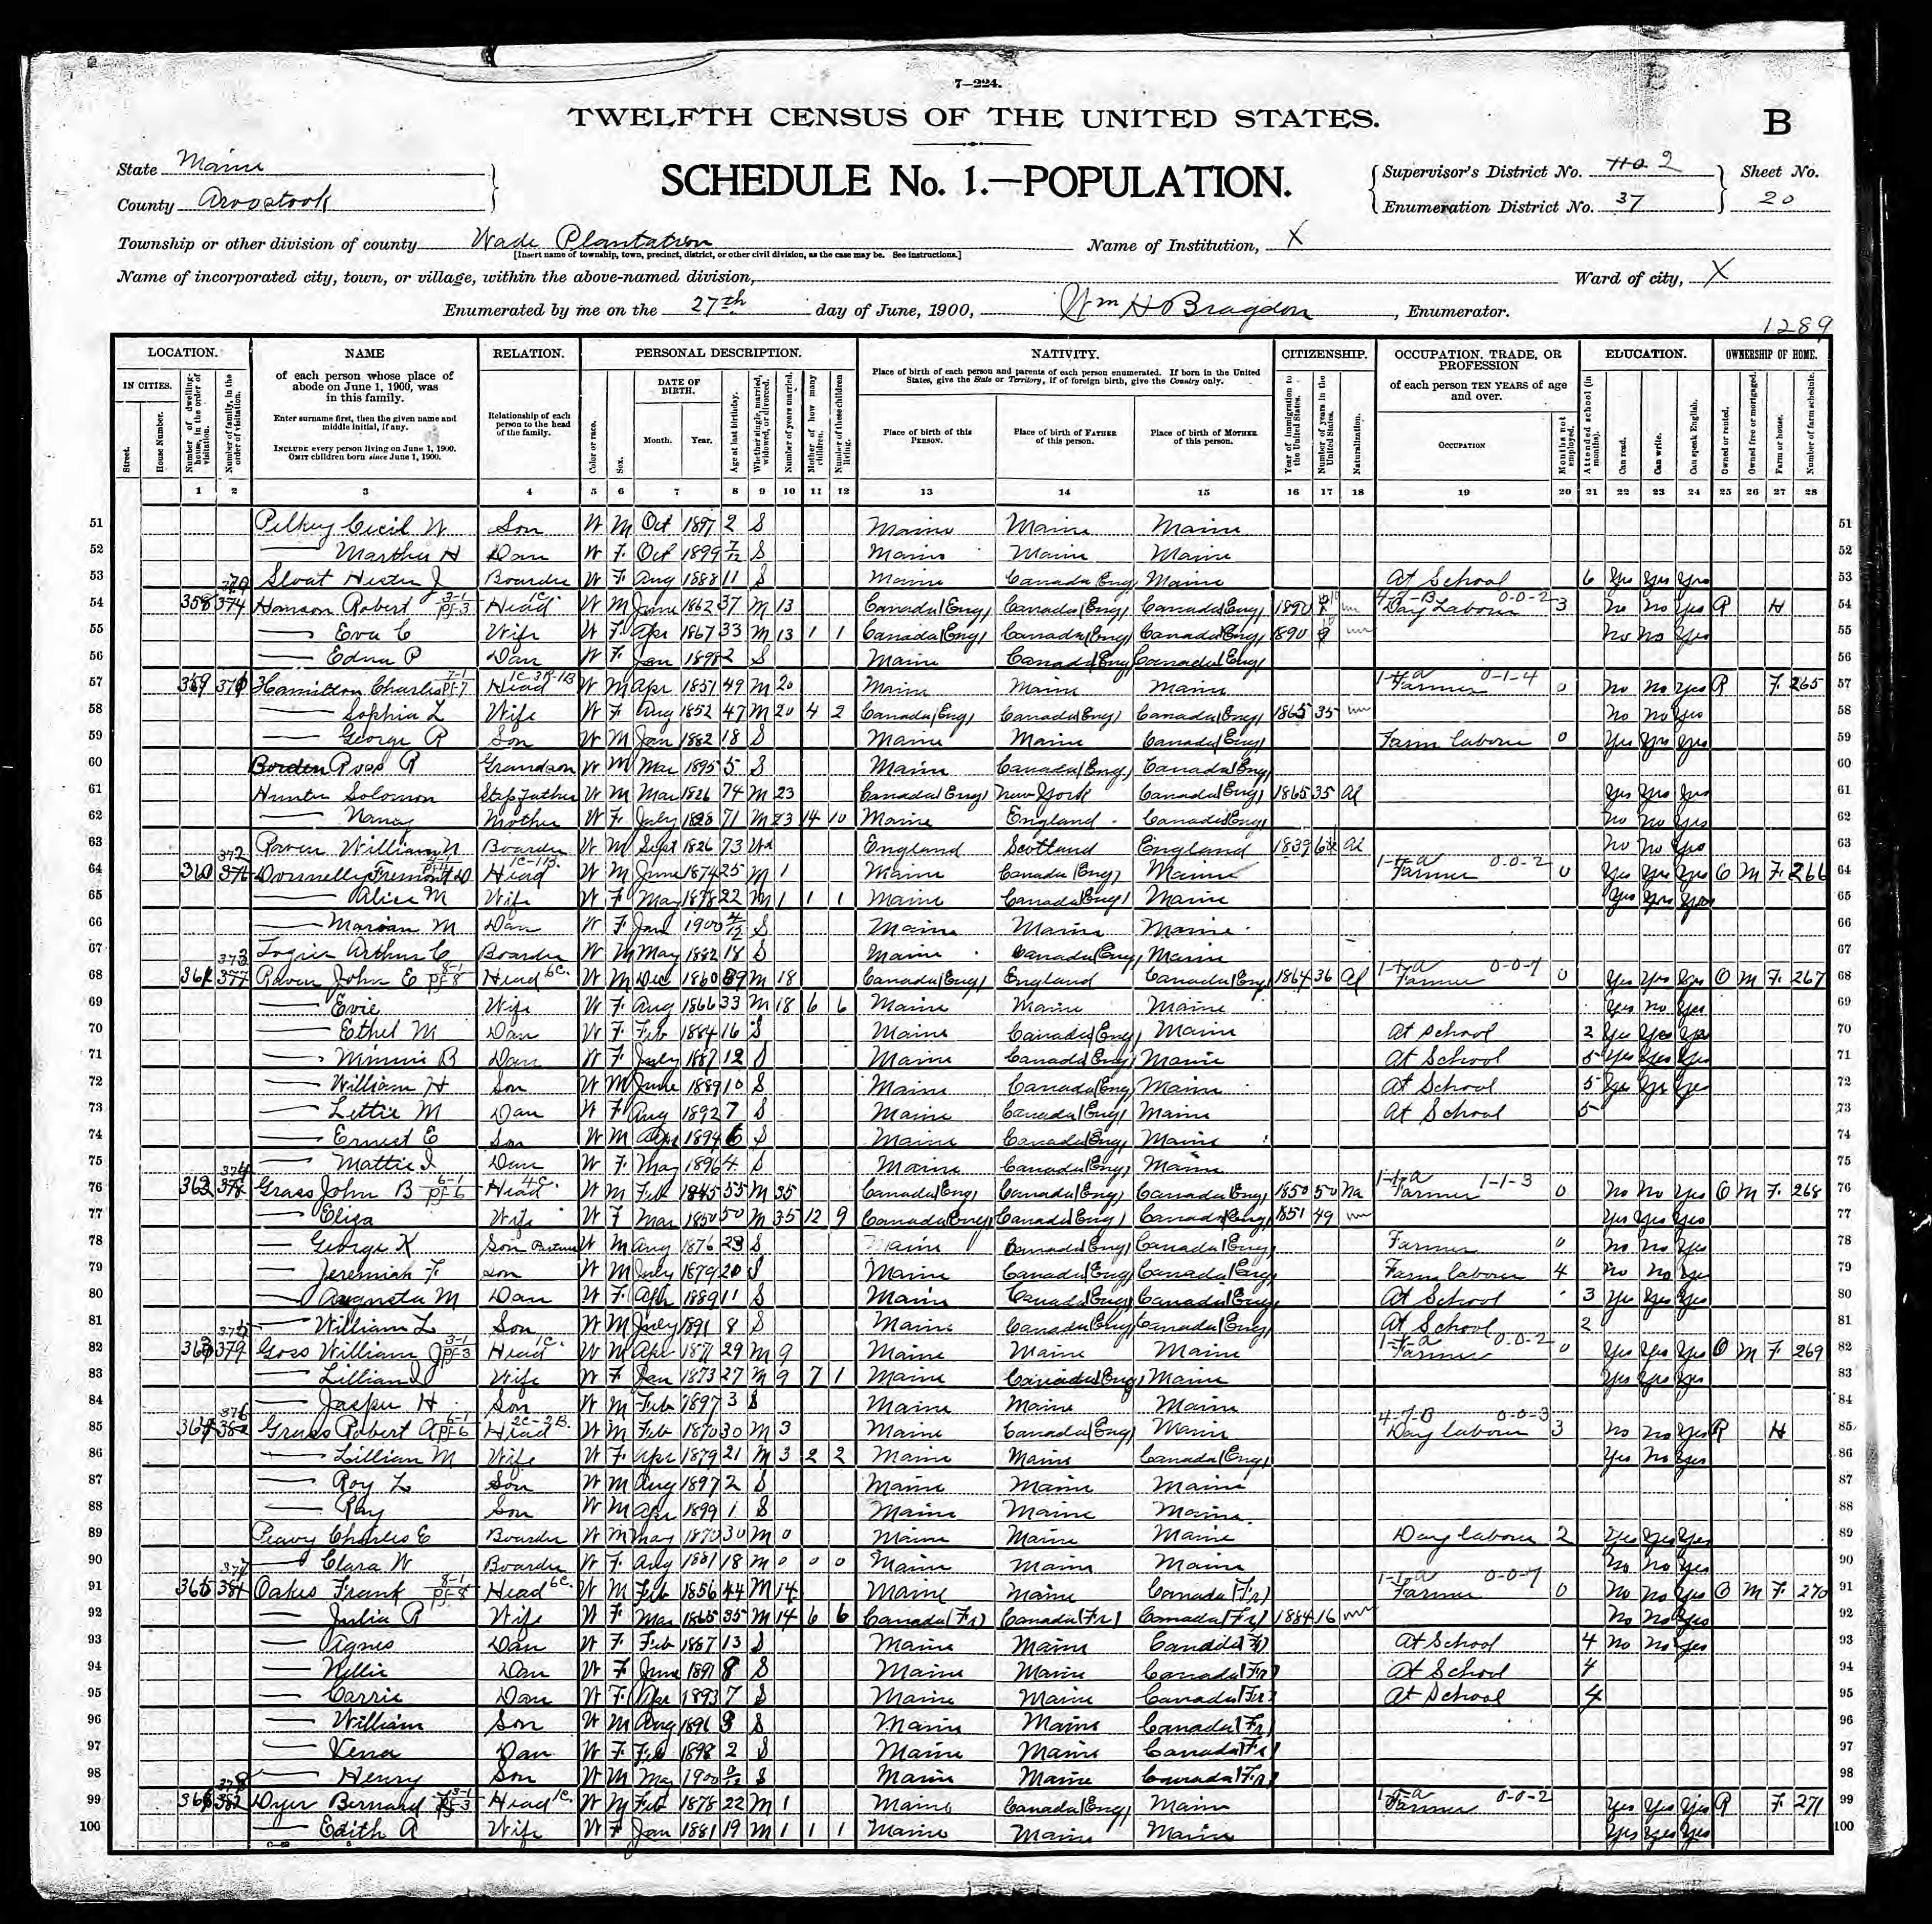 7—224.
TWELFTH CENSUS OF THE UNITED STATES.
B
State Maine
County Aroostook
SCHEDULE No. 1.—POPULATION.
Supervisor's District No. 2
Enumeration District No. 37
Sheet No.
20
Township or other division of county Wade Plantation
[Insert name of township, town, precinct, district, or other civil division, as the case may be. See instructions.]
Name of Institution, X
Name of incorporated city, town, or village, within the above-named division,
Ward of city, X
Enumerated by me on the 27th day of June, 1900, Wm H Bragdon, Enumerator.
1289
LOCATION. NAME RELATION. PERSONAL DESCRIPTION. NATIVITY. CITIZENSHIP. OCCUPATION, TRADE, OR PROFESSION EDUCATION. OWNERSHIP OF HOME.
IN CITIES.
Street.
House Number.
Number of dwelling-house, in the order of visitation.
Number of family, in the order of visitation.
of each person whose place of abode on June 1, 1900, was in this family.
Enter surname first, then the given name and middle initial, if any.
INCLUDE every person living on June 1, 1900.
OMIT children born since June 1, 1900.
Relationship of each person to the head of the family.
Color or race.
Sex.
DATE OF BIRTH.
Month. Year.
Age at last birthday.
Whether single, married, widowed, or divorced.
Number of years married.
Mother of how many children.
Number of these children living.
Place of birth of each person and parents of each person enumerated. If born in the United States, give the State or Territory, if of foreign birth, give the Country only.
Place of birth of this PERSON.
Place of birth of FATHER of this person.
Place of birth of MOTHER of this person.
Year of immigration to the United States.
Number of years in the United States.
Naturalization.
of each person TEN YEARS of age and over.
OCCUPATION
Months not employed.
Attended school (in months).
Can read.
Can write.
Can speak English.
Owned or rented.
Owned free or mortgaged.
Farm or house.
Number of farm schedule.
1 2 3 4 5 6 7 8 9 10 11 12 13 14 15 16 17 18 19 20 21 22 23 24 25 26 27 28
51 Pelkey Cecil W Son W M Oct 1897 2 S Maine Maine Maine 51
52 — Martha H Dau W F Oct 1899 7/12 S Maine Maine Maine 52
53 Hester J Boarder W F Aug 1888 11 S Maine Canada (Eng) Maine At School 6 Yes Yes Yes 53
54 358 374 Hanson Robert Head W M June 1862 37 M 13 Canada (Eng) Canada (Eng) Canada (Eng) 1890 Day Laborer 3 No No Yes R H 54
55 — Eva C Wife W F Apr 1867 33 M 13 1 1 Canada (Eng) Canada (Eng) Canada (Eng) 1890 No No Yes 55
56 — Edna P Dau W F Jan 1898 2 S Maine Canada (Eng) Canada (Eng) 56
57 359 Hamilton Charles Head W M Apr 1851 49 M 20 Maine Maine Maine Farmer 0 No No Yes R F 265 57
58 — Sophia L Wife W F Aug 1852 47 M 20 4 2 Canada (Eng) Canada (Eng) Canada (Eng) 1865 35 No No Yes 58
59 — George R Son W M Jan 1882 18 S Maine Maine Canada (Eng) Farm laborer 0 Yes Yes Yes 59
60 Borden Ross R Grandson W M Mar 1895 5 S Maine Canada (Eng) Canada (Eng) 60
61 Hunter Solomon Step Father W M Mar 1826 74 M 23 Canada (Eng) New York Canada (Eng) 1865 35 Al Yes Yes Yes 61
62 — Nancy Mother W F July 1828 71 M 23 14 10 Maine England Canada (Eng) No No Yes 62
63 Raven William Boarder W M Sept 1826 73 Wd England Scotland England 1839 Al No No Yes 63
64 360 Donnelly Fremont D Head W M June 1874 25 M 1 Maine Canada (Eng) Maine Farmer 0 Yes Yes Yes O M F 266 64
65 — Alice M Wife W F May 1878 22 M 1 1 1 Maine Canada (Eng) Maine Yes Yes Yes 65
66 — Marian M Dau W F Jan 1900 4/12 S Maine Maine Maine 66
67 Arthur C Boarder W M May 1882 18 S Maine Canada (Eng) Maine 67
68 361 377 Raven John E Head W M Dec 1860 39 M 18 Canada (Eng) England Canada (Eng) 1864 36 Al Farmer 0 Yes Yes Yes O M F 267 68
69 — Evie Wife W F Aug 1866 33 M 18 6 6 Maine Maine Maine Yes No Yes 69
70 — Ethel M Dau W F Feb 1884 16 S Maine Canada (Eng) Maine At School 2 Yes Yes Yes 70
71 — Minnie B Dau W F July 1887 12 S Maine Canada (Eng) Maine At School 5 Yes Yes Yes 71
72 — William H Son W M June 1889 10 S Maine Canada (Eng) Maine At School 5 Yes Yes Yes 72
73 — Lettie M Dau W F Aug 1892 7 S Maine Canada (Eng) Maine At School 5 73
74 — Ernest E Son W M Apr 1894 6 S Maine Canada (Eng) Maine 74
75 — Mattie I Dau W F May 1896 4 S Maine Canada (Eng) Maine 75
76 362 378 Grass John B Head W M Feb 1845 55 M 35 Canada (Eng) Canada (Eng) Canada (Eng) 1850 50 Na Farmer 0 No No Yes O M F 268 76
77 — Eliza Wife W F Mar 1850 50 M 35 12 9 Canada (Eng) Canada (Eng) Canada (Eng) 1851 49 Yes Yes Yes 77
78 — George K Son W M Aug 1876 23 S Maine Canada (Eng) Canada (Eng) Farmer 0 No No Yes 78
79 — Jeremiah F Son W M July 1879 20 S Maine Canada (Eng) Canada (Eng) Farm laborer 4 No No Yes 79
80 — Augusta M Dau W F Apr 1889 11 S Maine Canada (Eng) Canada (Eng) At School 3 Yes Yes Yes 80
81 — William L Son W M July 1891 8 S Maine Canada (Eng) Canada (Eng) At School 2 81
82 363 379 Goss William J Head W M Apr 1871 29 M 9 Maine Maine Maine Farmer 0 Yes Yes Yes O M F 269 82
83 — Lillian Wife W F Jan 1873 27 M 9 7 1 Maine Canada (Eng) Maine Yes Yes Yes 83
84 — Jasper H Son W M Feb 1897 3 S Maine Maine Maine 84
85 364 Grass Robert A Head W M Feb 1870 30 M 3 Maine Canada (Eng) Maine Day laborer 3 No No Yes R H 85
86 — Lillian M Wife W F Apr 1879 21 M 3 2 2 Maine Maine Canada (Eng) Yes No Yes 86
87 — Roy L Son W M Aug 1897 2 S Maine Maine Maine 87
88 — Ray Son W M Apr 1899 1 S Maine Maine Maine 88
89 Peavy Charles E Boarder W M May 1870 30 M 0 Maine Maine Maine Day laborer 2 Yes Yes Yes 89
90 — Clara W Boarder W F Aug 1881 18 M 0 0 0 Maine Maine Maine No No Yes 90
91 365 381 Oakes Frank Head W M Feb 1856 44 M 14 Maine Maine Canada (Fr) Farmer 0 No No Yes O M F 270 91
92 — Julia R Wife W F Mar 1865 35 M 14 6 6 Canada (Fr) Canada (Fr) Canada (Fr) 1884 16 No No Yes 92
93 — Agnes Dau W F Feb 1887 13 S Maine Maine Canada (Fr) At School 4 No No Yes 93
94 — Nellie Dau W F June 1891 8 S Maine Maine Canada (Fr) At School 4 94
95 — Carrie Dau W F Apr 1893 7 S Maine Maine Canada (Fr) At School 4 95
96 — William Son W M Aug 1896 3 S Maine Maine Canada (Fr) 96
97 — Vena Dau W F Feb 1898 2 S Maine Maine Canada (Fr) 97
98 — Henry Son W M May 1900 0/12 S Maine Maine Canada (Fr) 98
99 366 382 Dyer Bernard Head W M Feb 1878 22 M 1 Maine Canada (Eng) Maine Farmer Yes Yes Yes R F 271 99
100 — Edith A Wife W F Jan 1881 19 M 1 1 1 Maine Maine Maine Yes Yes Yes 100